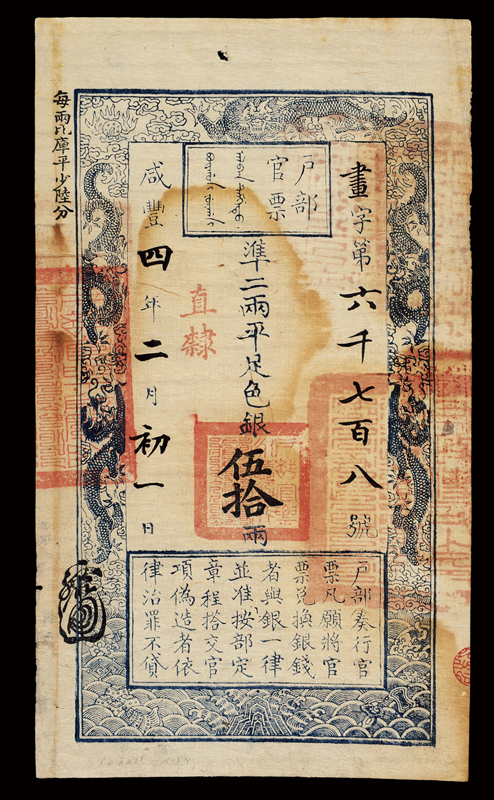 戶部
官票
畫字第六千七百八號
準二兩平足色銀伍拾兩
直隸
咸豐四年二月初一日
戶部奏行官
票凡願將官
票兌換銀錢
者與銀一律
並准按部定
章程搭交官
項偽造者依
律治罪不貸
每兩比庫平少陸分